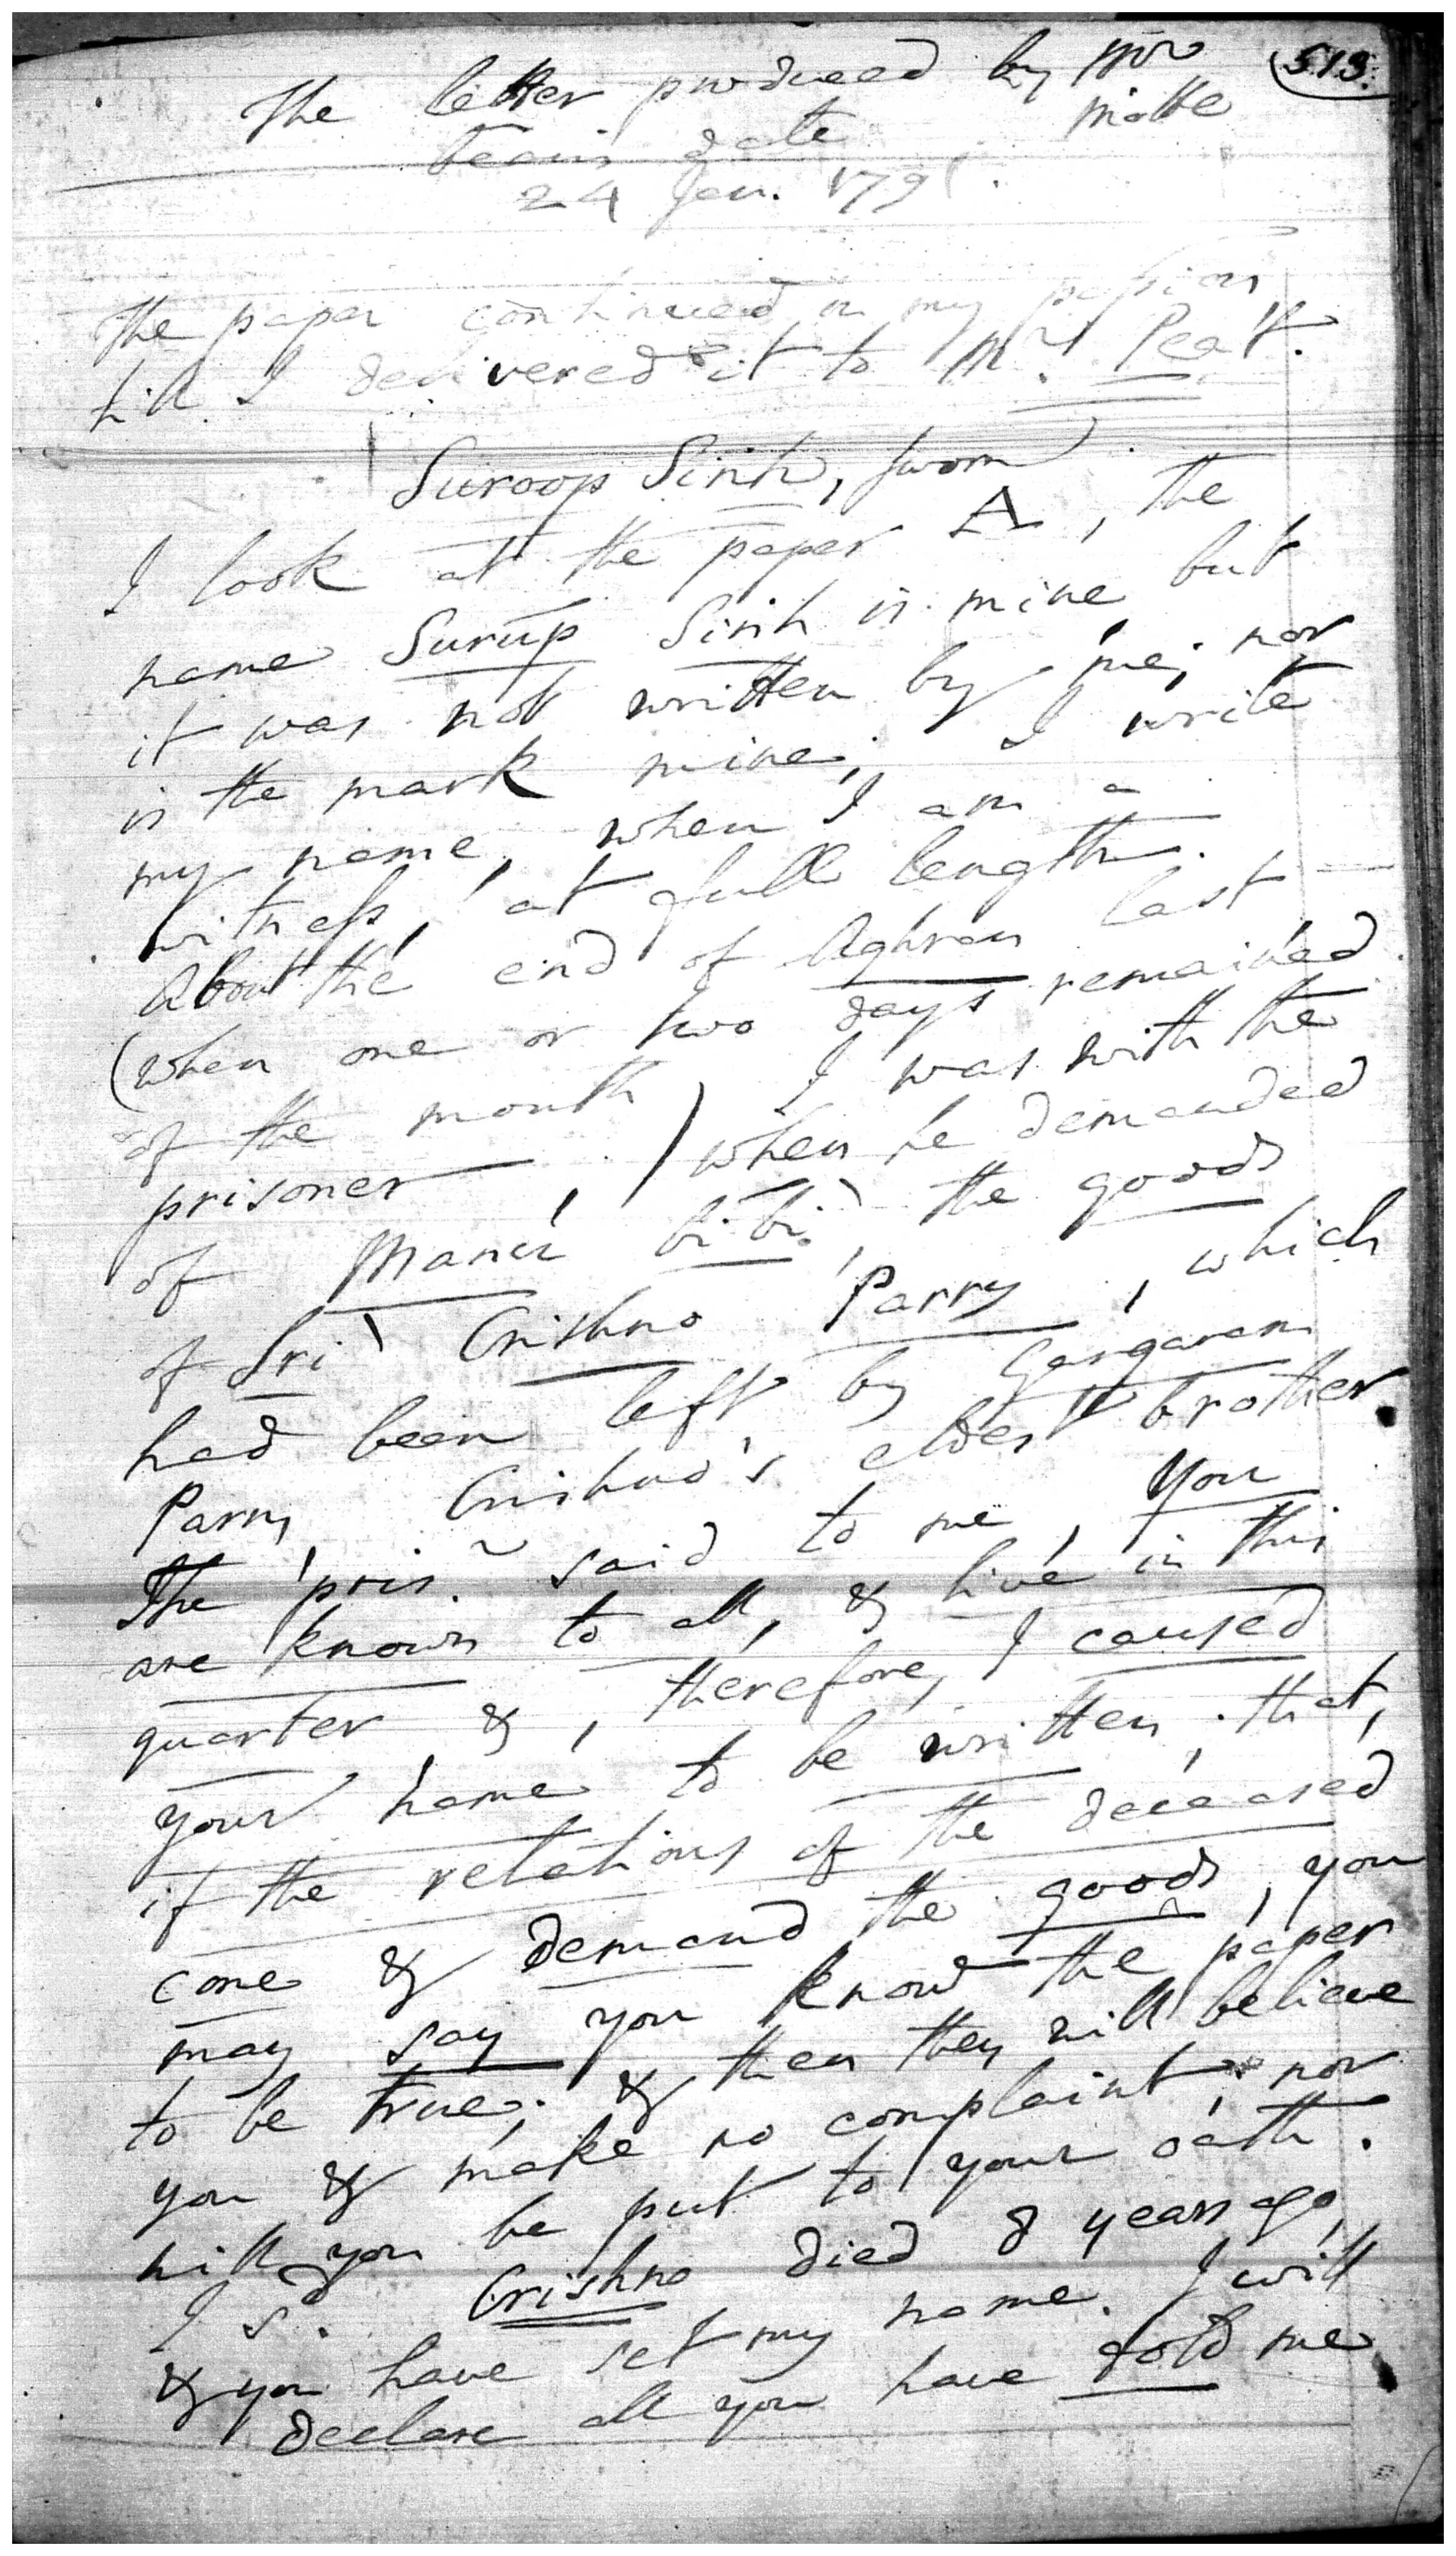 513.
The letter produced by Mr
Motte
bears date
24 Jan. 1791.
The paper continued in my possession
till I delivered it to Mr. Peat.
Suroop Sinh, sworn
I look at the paper A, the
name Surup Sinh is mine but
it was not written by me; nor
is the mark mine; I write
my name, when I am a
witness, at full length.
About the end of Aghran last
(when one or two days remained
of the month) I was with the
prisoner, when he demanded
of Manu bibi, the goods
of Sri Crishno Parry, which
had been left by Gangaram
Parry, Crishno's eldest brother
The pris.r said to me, You
are known to all, & live in this
quarter &, therefore, I caused
your name to be written, that,
if the relations of the deceased
come & demand the goods, you
may say you know the paper
to be true; & then they will believe
you & make no complaint, nor
will you be put to your oath.
I sd. Crishno died 8 years ago,
& you have set my name. I will
declare all you have told me